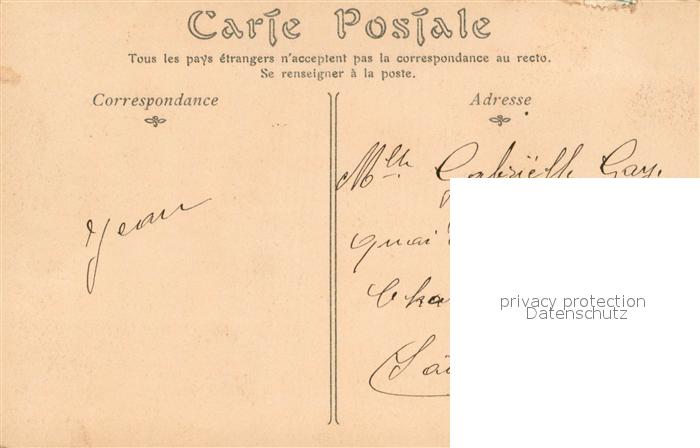 Carte Postale
Tous les pays étrangers n'acceptent pas la correspondance au recto.
Se renseigner à la poste.
Correspondance
Adresse
Jean
Mlle Gabrielle Gay
quai
Cha
Saô
privacy protection
Datenschutz